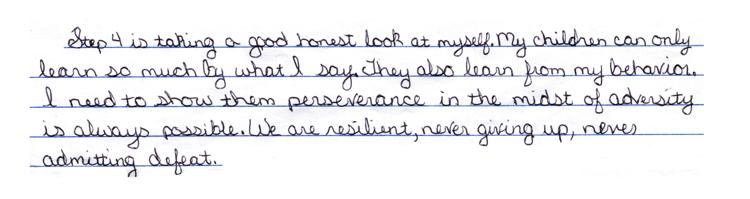 Step 4 is taking a good honest look at myself. My children can only
learn so much by what I say. They also learn from my behavior.
I need to show them perseverance in the midst of adversity
is always possible. We are resilient, never giving up, never
admitting defeat.